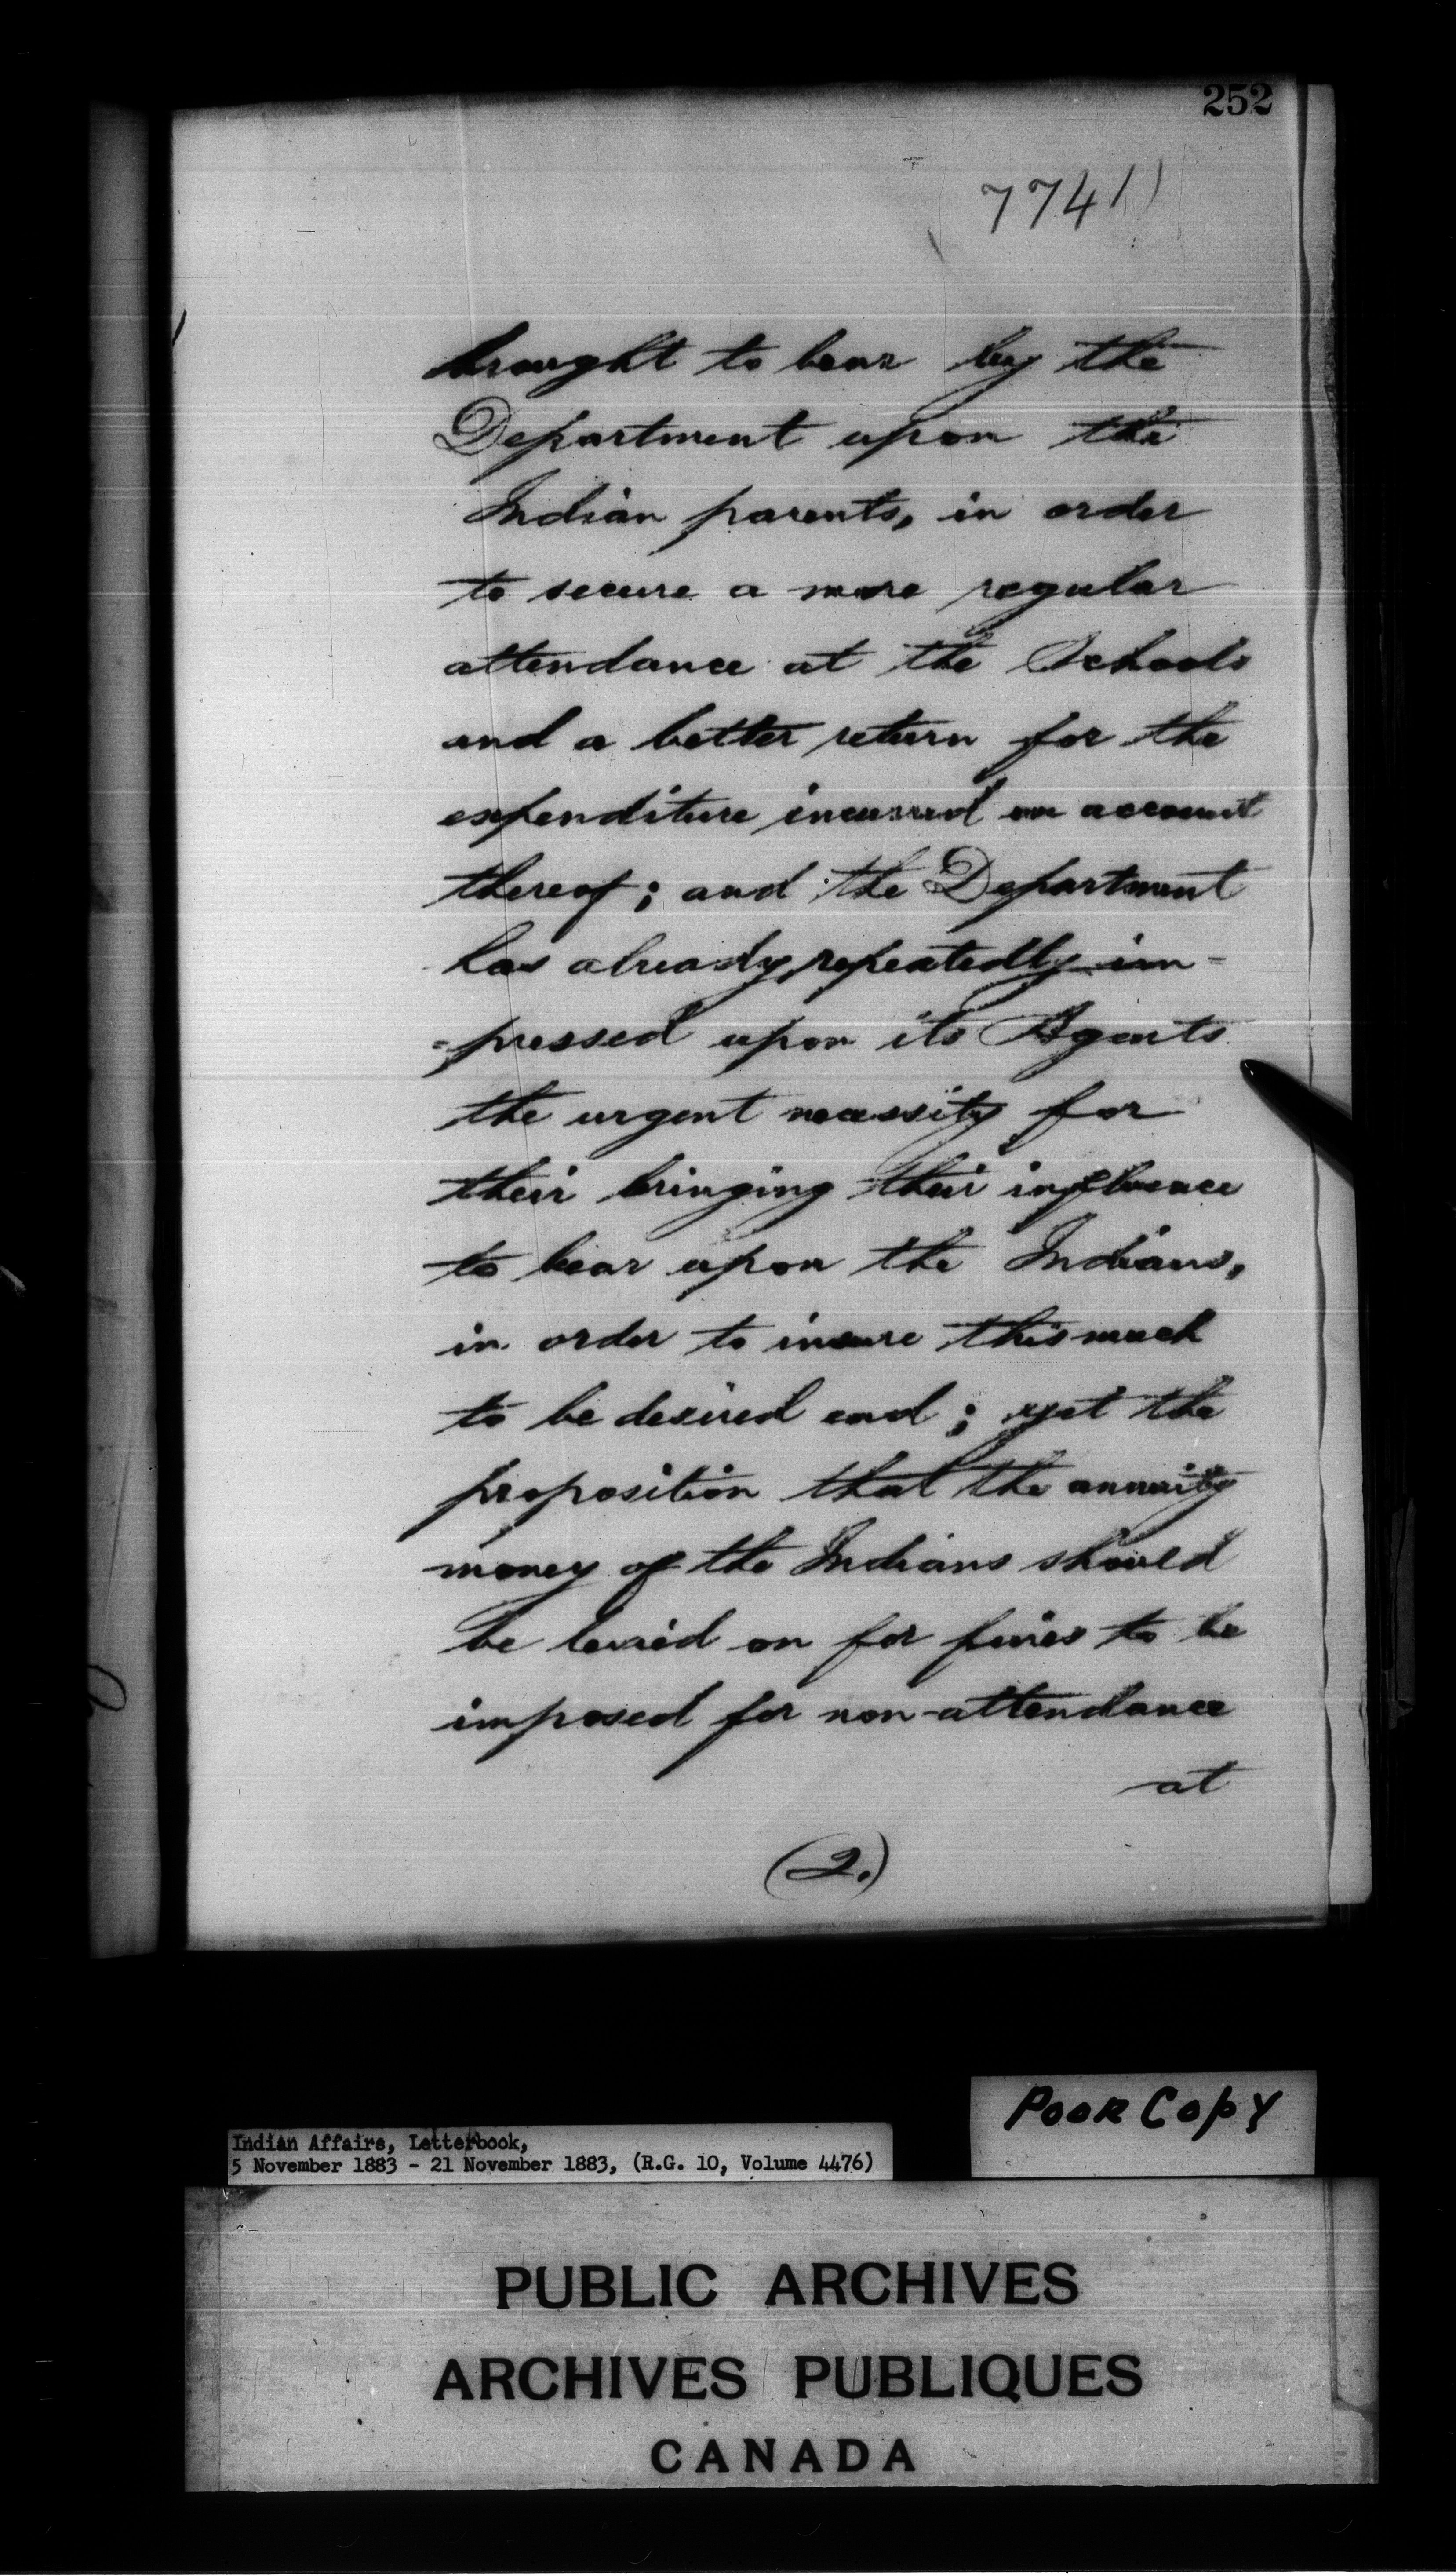 252
7741
brought to bear by the
Department upon the
Indian parents, in order
to secure a more regular
attendance at the Schools
and a better return for the
expenditure incurred on account
thereof; and the Department
has already, repeatedly im=
=pressed upon its Agents
the urgent necessity for
their bringing their influence
to bear upon the Indians,
in order to insure this much
to be desired end; yet the
proposition that the annuity
money of the Indians should
be levied on for fines to be
imposed for non-attendance
at
(2.)
POOR COPY
Indian Affairs, Letterbook,
5 November 1883 - 21 November 1883, (R.G. 10, Volume 4476)
PUBLIC ARCHIVES
ARCHIVES PUBLIQUES
CANADA